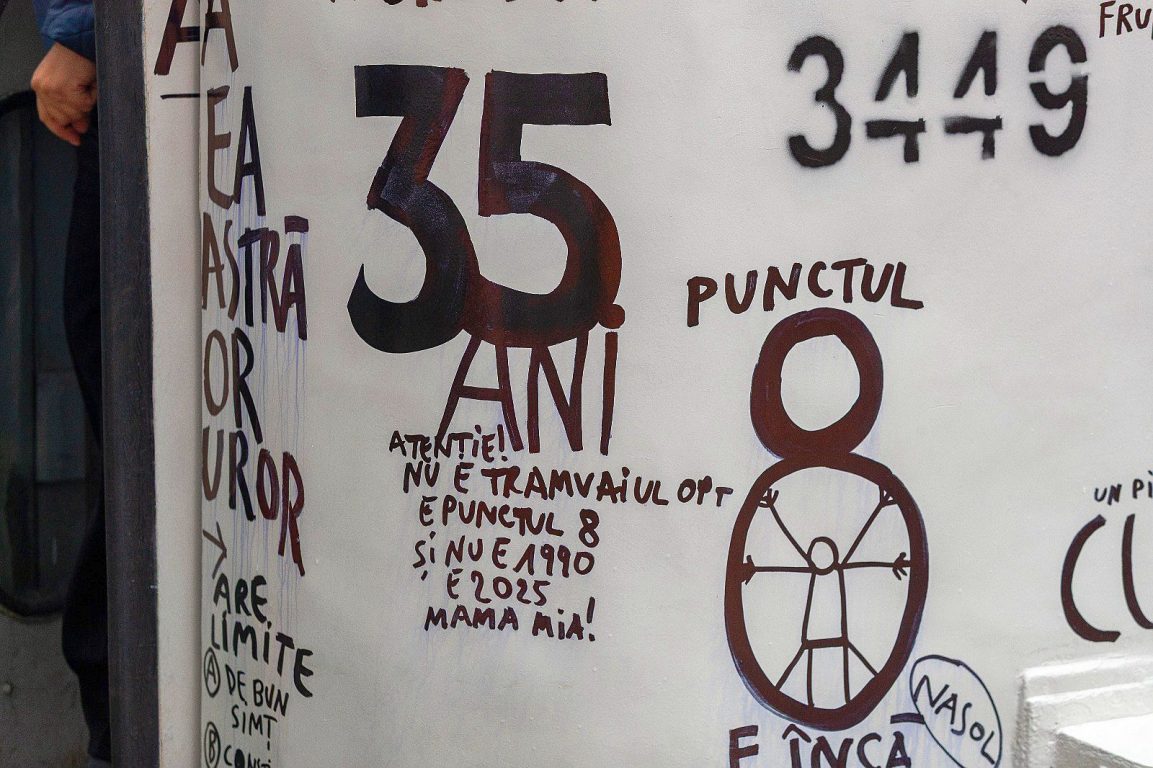 EA
ASTRĂ
OR
UROR
→ ARE
LIMITE
Ⓐ DE BUN
SIMȚ
Ⓑ
35
ANI
ATENȚIE!
NU E TRAMVAIUL OPT
E PUNCTUL 8
ȘI NU E 1990
E 2025
MAMA MIA!
3449
PUNCTUL
8
E ÎNCĂ
NASOL
UN